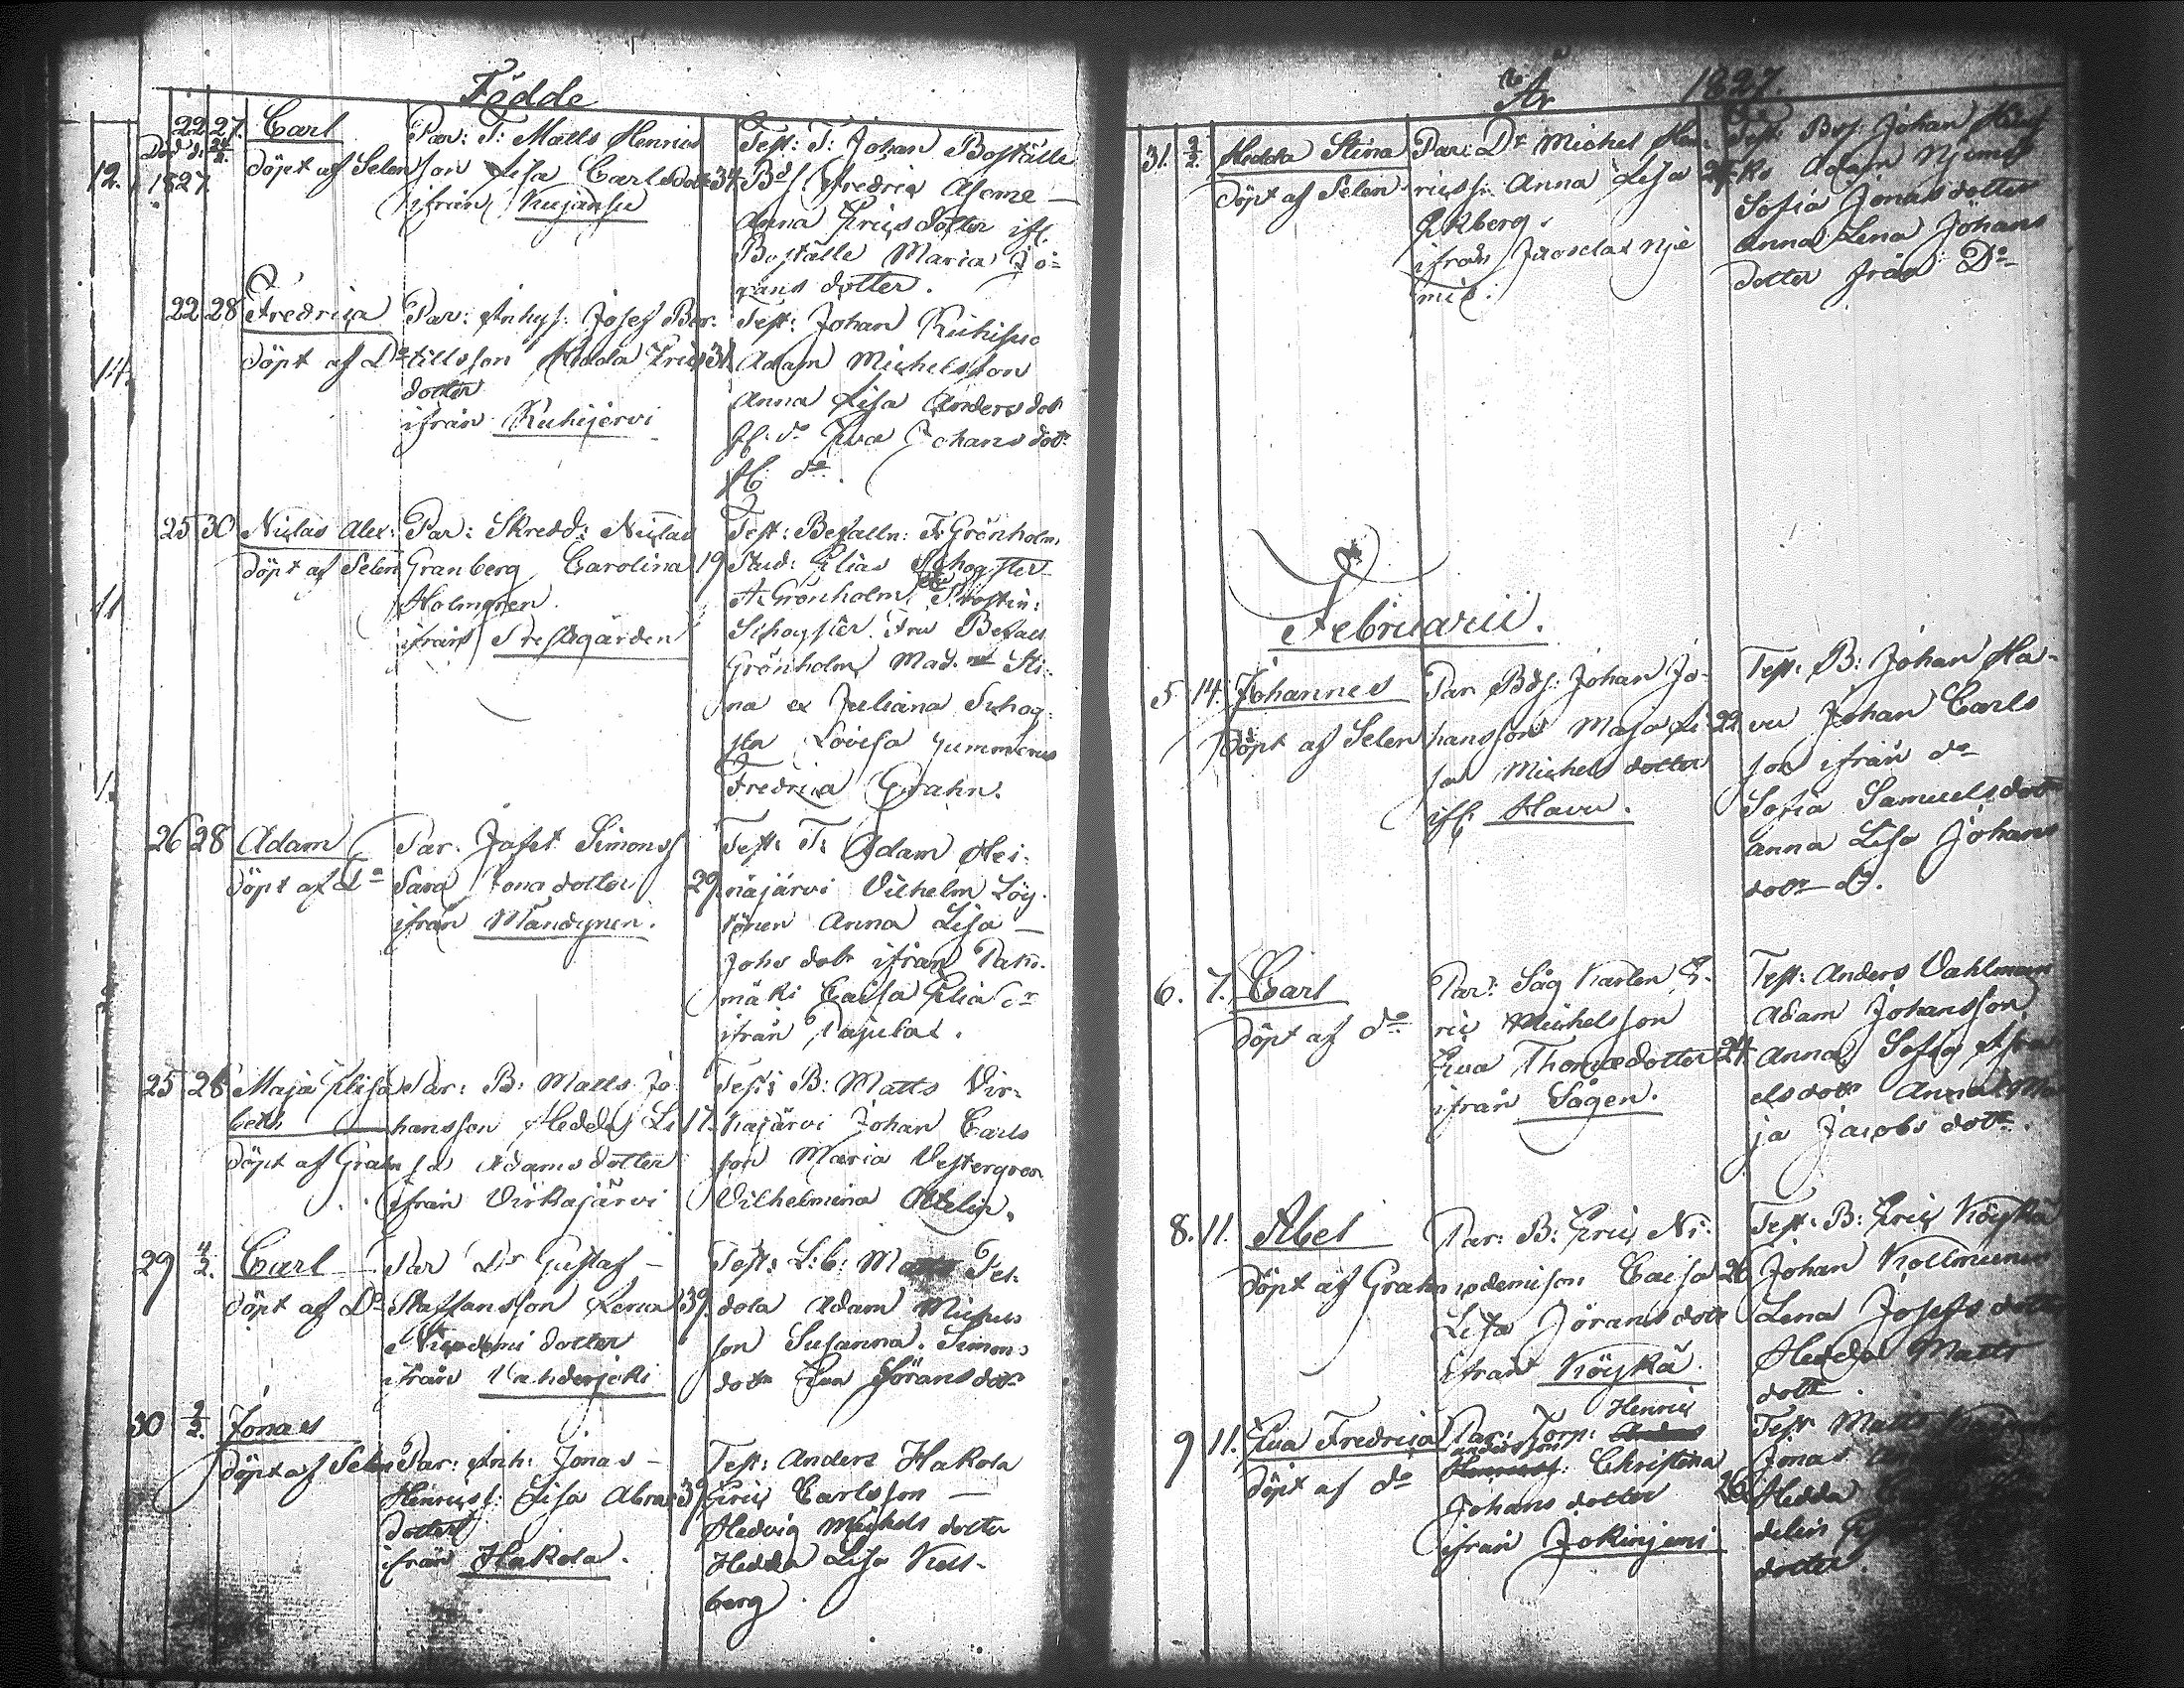 Födde
22 27. Carl
Död d. 24/2. 1827
12.
döpt af Selen
Par: T: Matts Henrics
son Lisa Carlsdott 34
ifrån Kujansu
Test: T: Johan Boställe
Bds Fredric Asome
Anna Ericsdotter ifl.
Boställe Maria Jö-
rans dotter.
14.
22 28 Fredrica
döpt af Do
Par: Inhys: Josef Ber-
tillsson Hedda Erics 31
dotter
ifrån Ruhijervi
Test: Johan
Adam Michelsson
Anna Lisa Anders dotr
do Eva Johans dotr
do
11
25 30 Niclas Alex:
döpt af Selen
Par: Skredd: Niclas
Granberg Carolina 19
Holmgren
ifrån Prestgården
Test: Befalln: F: Grönholm
Stud: Elias Schogster
A: Grönholm Prostin:
Schogster Fru Befall
Grönholm Mad. Sti-
na et Juliana Schog-
ster Lovisa Gummerus
Fredrica Grahn.
1.
26 28 Adam
döpt af Do
Par. Jafet Simons
Sara Jona dotter 29
ifrån Mändynen.
Test: T: Adam Hei-
näjärvi Vilhelm Löy-
tönen Anna Lisa
Johs dotr ifrån Pahi-
mäki Caisa Elia dr
ifrån Pajulat.
25 28 Maja Elisa
beth
döpt af Grahn
Par: B: Matts Jo-
hansson Hedda Li 17.
sa Adamsdotter
ifrån Virkajärvi
Test: B: Matts Vir-
kajärvi Johan Carls
son Maria Vestergren
Vilhelmina Attelin.
29 4/2. Carl
döpt af Do
Par Dr Gustaf
Staffansson Lena 39.
Nicodemi dotter
ifrån Vahderjoki
Test: L: C: Matts
dola Adam Michels
son Susanna Simons
dotr Eva Jöransdotr
30 2/2. Jonas
döpt af Selen
Par: Inh: Jonas
Henricss: Lisa Abra 39
dotter
ifrån Hakola.
Test: Anders Hakola
Eric Carlsson
Hedvig Michels dotter
Hedda Lisa Kell-
berg.
År 1827.
31. 2/2. Hedda Stina
döpt af Selen
Par: Dr Michel Hen-
ricss: Anna Lisa
Ekberg.
ifrån Jaoselat Nie
mis.
Test: Bds: Johan
ko Adam Njemis
Sofia Jonasdotter
Anna Lena Johans
dotter från Do
Februarii.
5. 14. Johannes
döpt af Selen
Par Bds: Johan Jo-
hansson Maja Li 22.
sa Michels dotter
ifl. Havu.
Test: B: Johan Ha-
vu Johan Carls
son ifrån do
Sofia Samuelsdotr
Anna Lisa Johans
dotr do.
6. 7. Carl
döpt af do
Par: Såg Karlen E-
ric Michelsson
Eva Thomædotter 24.
ifrån Sågen.
Test: Anders Vahlman
Adam Johansson,
Anna Sofia
elsdotr Anna Ma
ja Jacobs dotr.
8. 11. Abel
döpt af Grahn
Par: B: Eric Ni-
codemison Caisa 26
Lisa Jöransdotr
ifrån Köykä
Test: B: Eric Köykä
Johan Kollmunen
Lena Josefs dotter
Hedda Matts
dotr.
9 11. Eva Fredrica
döpt af do
Par: Torp: Henric
Andersson Christina 26.
Johans dotter
ifrån Jokinjemi
Test Matts
Jonas
Hedda
delin
dotter.